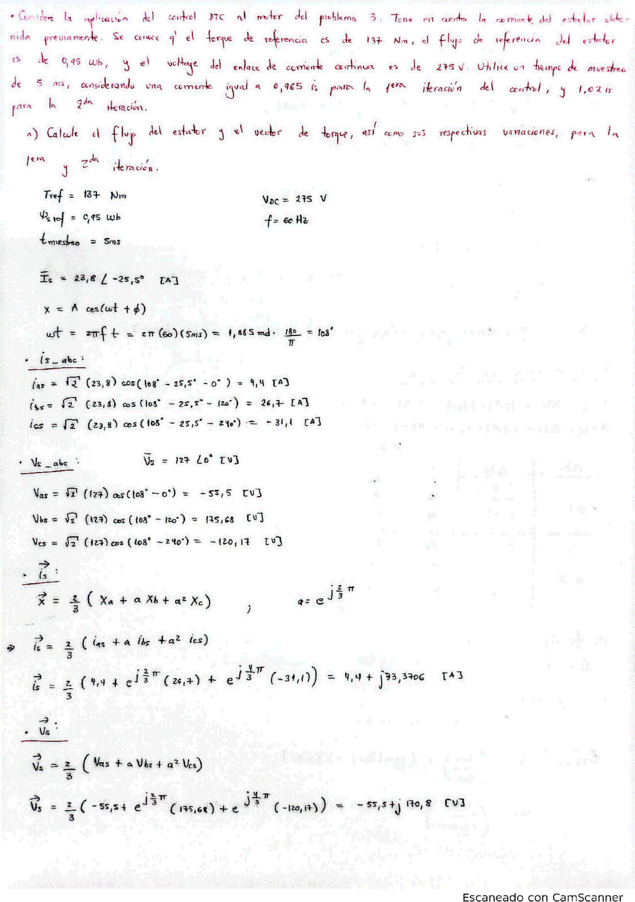 • Considere la aplicación del control DTC al motor del problema 3. Tome en cuenta la corriente del estator obte-
nida previamente. Se conoce q' el torque de referencia es de 137 Nm, el flujo de referencia del estator
es de 0,95 wb, y el voltaje del enlace de corriente continua es de 275 V. Utilice un tiempo de muestreo
de 5 ms, considerando una corriente igual a 0,965 is para la 1era iteración del control, y 1,02 is
para la 2da iteración.
a) Calcule el flujo del estator y el vector de torque, así como sus respectivas variaciones, para la
1era y 2da iteración.
Tref = 137 Nm VDC = 275 V
Ψs ref = 0,95 wb f = 60 Hz
tmuestreo = 5ms
I̅s = 23,8 ∠ -25,5° [A]
x = A cos(ωt + ϕ)
ωt = 2πf t = 2π (60)(5ms) = 1,885 rad · 180/π = 108°
• is_abc :
ias = √2 (23,8) cos(108° - 25,5° - 0°) = 4,4 [A]
ibs = √2 (23,8) cos (108° - 25,5° - 120°) = 26,7 [A]
ics = √2 (23,8) cos (108° - 25,5 - 240°) = -31,1 [A]
• Vs_abc : V̅s = 127 ∠0° [V]
Vas = √2 (127) cos(108° - 0°) = -55,5 [V]
Vbs = √2 (127) cos (108° - 120°) = 175,68 [V]
Vcs = √2 (127) cos (108° - 240°) = -120,17 [V]
• i⃗s :
x⃗ = 2/3 ( Xa + a Xb + a² Xc) ; a = e^(j 2/3 π)
⇒ i⃗s = 2/3 ( ias + a ibs + a² ics)
i⃗s = 2/3 ( 4,4 + e^(j 2/3 π) (26,7) + e^(j 4/3 π) (-31,1)) = 4,4 + j33,3706 [A]
• V⃗s :
V⃗s = 2/3 ( Vas + a Vbs + a² Vcs)
V⃗s = 2/3 ( -55,5 + e^(j 2/3 π) (175,68) + e^(j 4/3 π) (-120,17)) = -55,5 + j 170,8 [V]
Escaneado con CamScanner